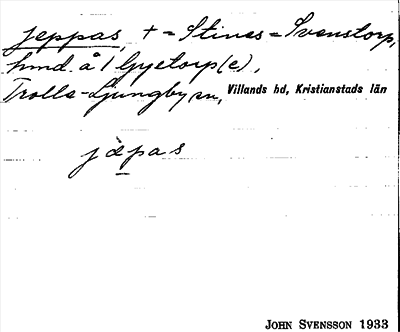 Jeppas, + = Stines = Svenstorp,
hmd. å 1 Gyetorp(e),
Trolle-Ljungby sn, Villands hd, Kristianstads län
jäpas
JOHN SVENSSON 1933